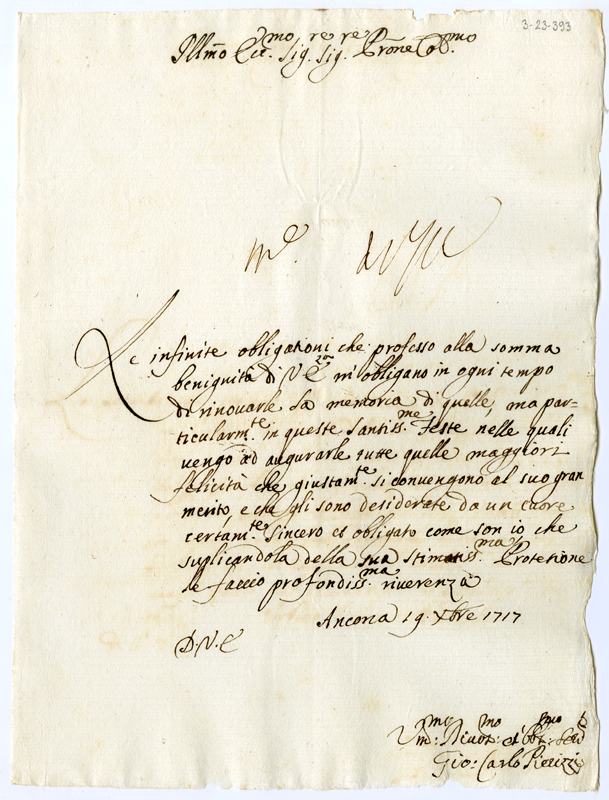 3-23-393
Illmo Ecc.mo Sig.re Sig.re Prone Col.mo
Le infinite obligationi che professo alla somma
benignità di V E m'obligano in ogni tempo
di rinovarle la memoria di quelle, ma par-
ticularm.te in queste Santiss.me Feste nelle quali
vengo ad augurarle tutte quelle maggiori
felicità che giustam.te si convengono al suo gran
merito, e che gli sono desiderate da un cuore
certam.te sincero et obligato come son io che
suplicandola della sua stimatiss.ma Protetione
le faccio profondiss.ma riverenza
Ancona 19 Xbre 1717
D.V.E
Um.mo Divot.mo et Obl.mo
Gio: Carlo